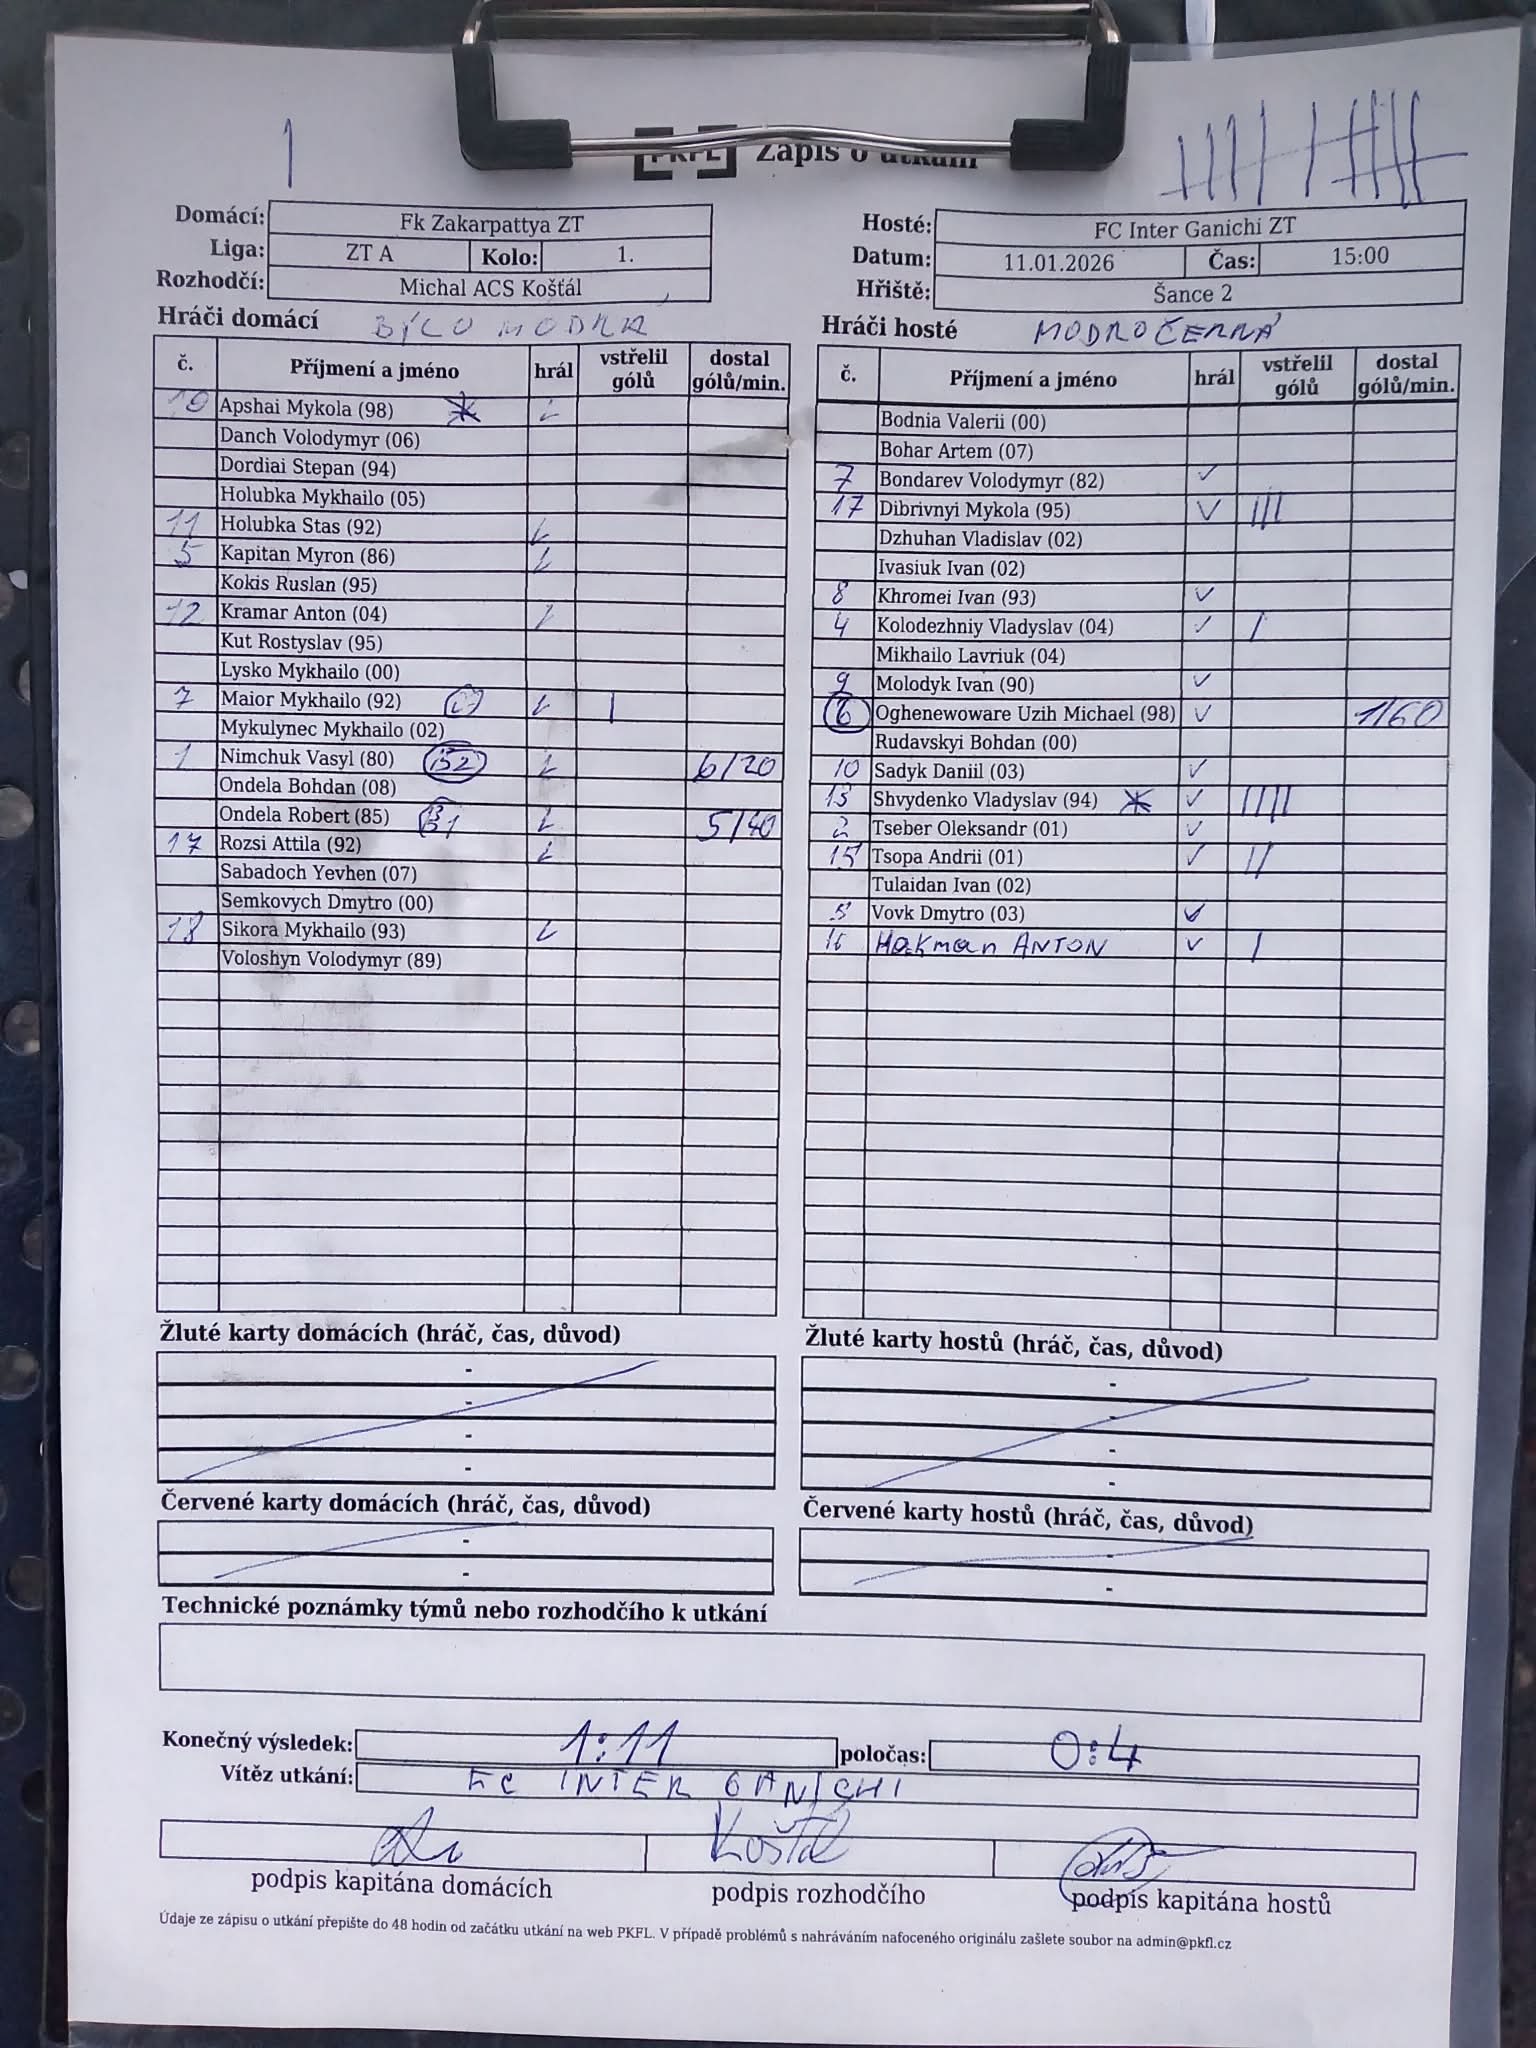 PKFL Zápis o utkání
Domácí: Fk Zakarpattya ZT
Liga: ZT A Kolo: 1.
Rozhodčí: Michal ACS Košťál
Hosté: FC Inter Ganichi ZT
Datum: 11.01.2026 Čas: 15:00
Hřiště: Šance 2
Hráči domácí BÍLO MODRÁ
č. Příjmení a jméno hrál vstřelil gólů dostal gólů/min.
Apshai Mykola (98)
Danch Volodymyr (06)
Dordiai Stepan (94)
Holubka Mykhailo (05)
11 Holubka Stas (92)
5 Kapitan Myron (86)
Kokis Ruslan (95)
12 Kramar Anton (04)
Kut Rostyslav (95)
Lysko Mykhailo (00)
7 Maior Mykhailo (92) |
Mykulynec Mykhailo (02)
1 Nimchuk Vasyl (80) B2 6/20
Ondela Bohdan (08)
Ondela Robert (85) B1 5/40
17 Rozsi Attila (92)
Sabadoch Yevhen (07)
Semkovych Dmytro (00)
18 Sikora Mykhailo (93)
Voloshyn Volodymyr (89)
Hráči hosté MODROČERNÁ
č. Příjmení a jméno hrál vstřelil gólů dostal gólů/min.
Bodnia Valerii (00)
Bohar Artem (07)
7 Bondarev Volodymyr (82) ✓
17 Dibrivnyi Mykola (95) ✓ |||
Dzhuhan Vladislav (02)
Ivasiuk Ivan (02)
8 Khromei Ivan (93) ✓
4 Kolodezhniy Vladyslav (04) ✓ |
Mikhailo Lavriuk (04)
9 Molodyk Ivan (90) ✓
6 Oghenewoware Uzih Michael (98) ✓ 1/60
Rudavskyi Bohdan (00)
10 Sadyk Daniil (03) ✓
13 Shvydenko Vladyslav (94) ✓ ||||
2 Tseber Oleksandr (01) ✓
15 Tsopa Andrii (01) ✓ ||
Tulaidan Ivan (02)
5 Vovk Dmytro (03) ✓
16 Hakman ANTON ✓ |
Žluté karty domácích (hráč, čas, důvod)
-
-
-
-
Žluté karty hostů (hráč, čas, důvod)
-
-
-
-
Červené karty domácích (hráč, čas, důvod)
-
-
Červené karty hostů (hráč, čas, důvod)
-
-
Technické poznámky týmů nebo rozhodčího k utkání
Konečný výsledek: 1:11 poločas: 0:4
Vítěz utkání: FC INTER GANICHI
Košťál
podpis kapitána domácích podpis rozhodčího podpis kapitána hostů
Údaje ze zápisu o utkání přepište do 48 hodin od začátku utkání na web PKFL. V případě problémů s nahráváním nafoceného originálu zašlete soubor na admin@pkfl.cz